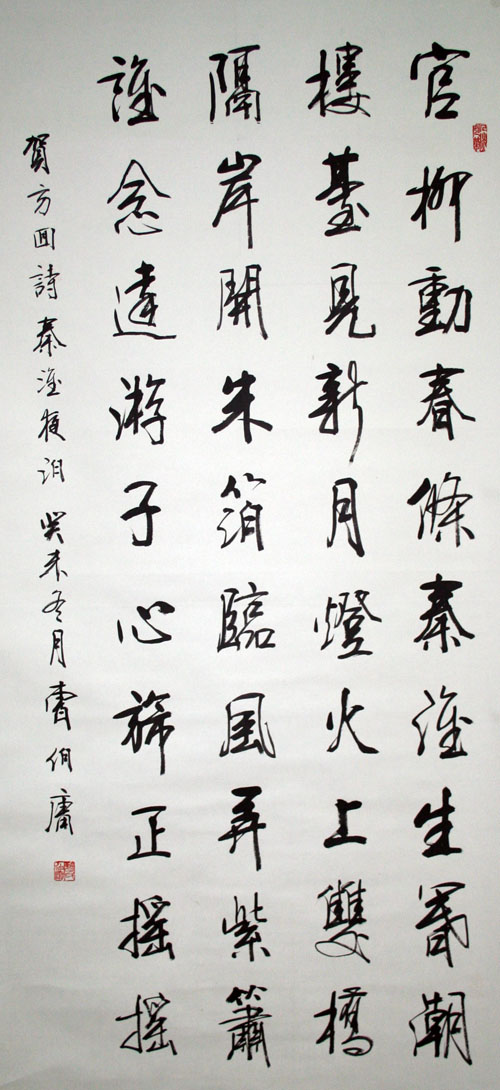 官柳動春條秦淮生暮潮
樓臺見新月燈火上雙橋
隔岸開朱箔臨風弄紫簫
誰念遠游子心旆正搖搖
賀方回詩秦淮夜泊 癸未冬月 曹伯庸